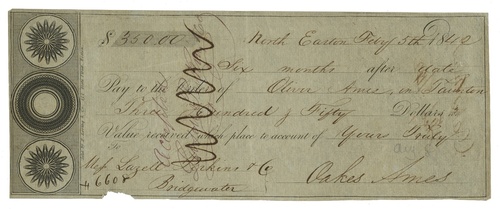 $ 350.00 North Easton Feby 5th 1842
Six months after date
Pay to the Order of Oliver Ames, in Taunton
Three Hundred & Fifty Dollars
Value received which place to account of Yours Truly
To
Mess Lazell Perkins & Co
Bridgewater Oakes Ames
4660
Accepted